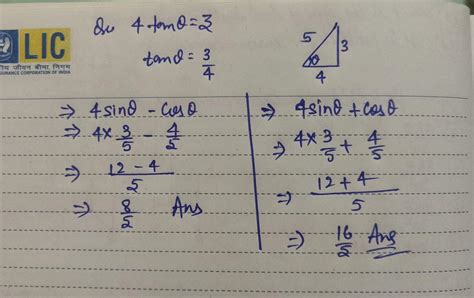 LIC
भारतीय जीवन बीमा निगम
INSURANCE CORPORATION OF INDIA
4 tanθ = 3
tanθ = 3/4
5
3
θ
4
⇒ 4sinθ - cosθ
⇒ 4× 3/5 - 4/5
⇒ 12 - 4 / 5
⇒ 8/5 Ans
⇒ 4sinθ + cosθ
⇒ 4× 3/5 + 4/5
⇒ 12 + 4 / 5
⇒ 16/5 Ans